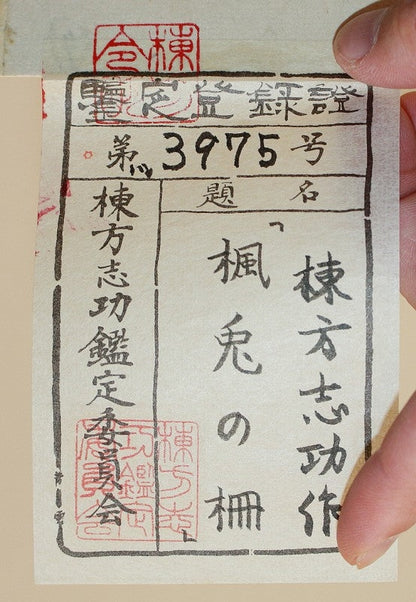 鑒定登録證
第 3975 号
題名
棟方志功作
「楓兎の柵」
棟方志功鑑定委員会
棟方志
功鑑定
委員会